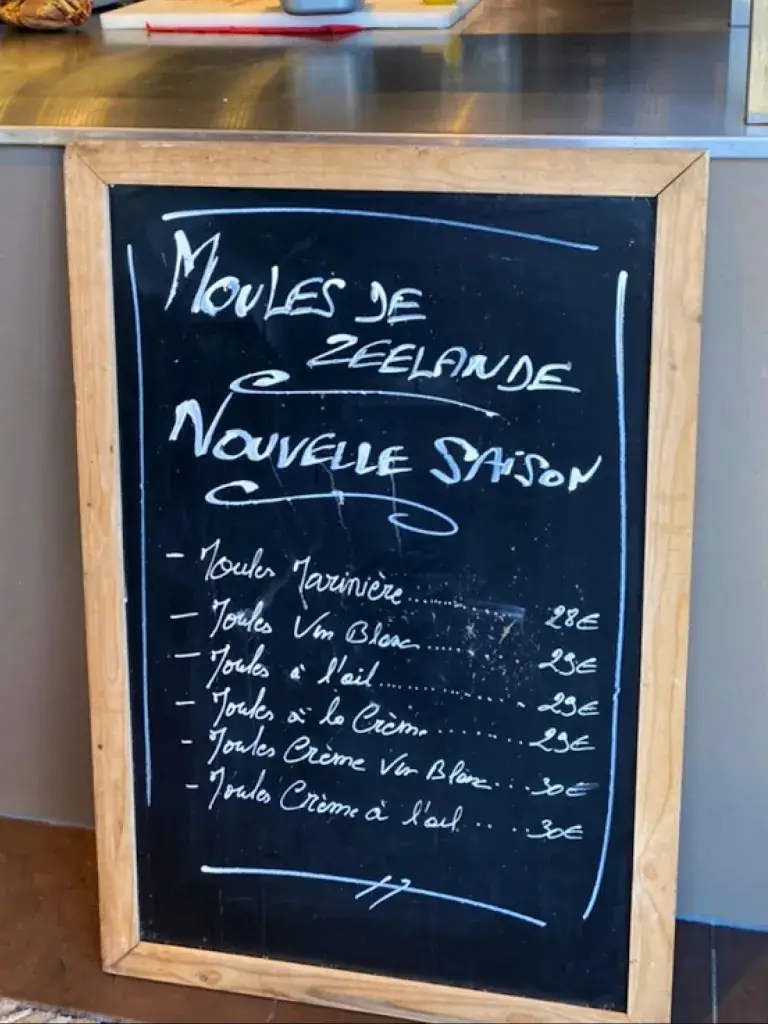 MOULES DE
ZEELANDE
NOUVELLE SAISON
- Moules Marinière......... 28€
- Moules Vin Blanc......... 29€
- Moules à l'ail......... 29€
- Moules à la Crème......... 29€
- Moules Crème Vin Blanc... 30€
- Moules Crème à l'ail..... 30€